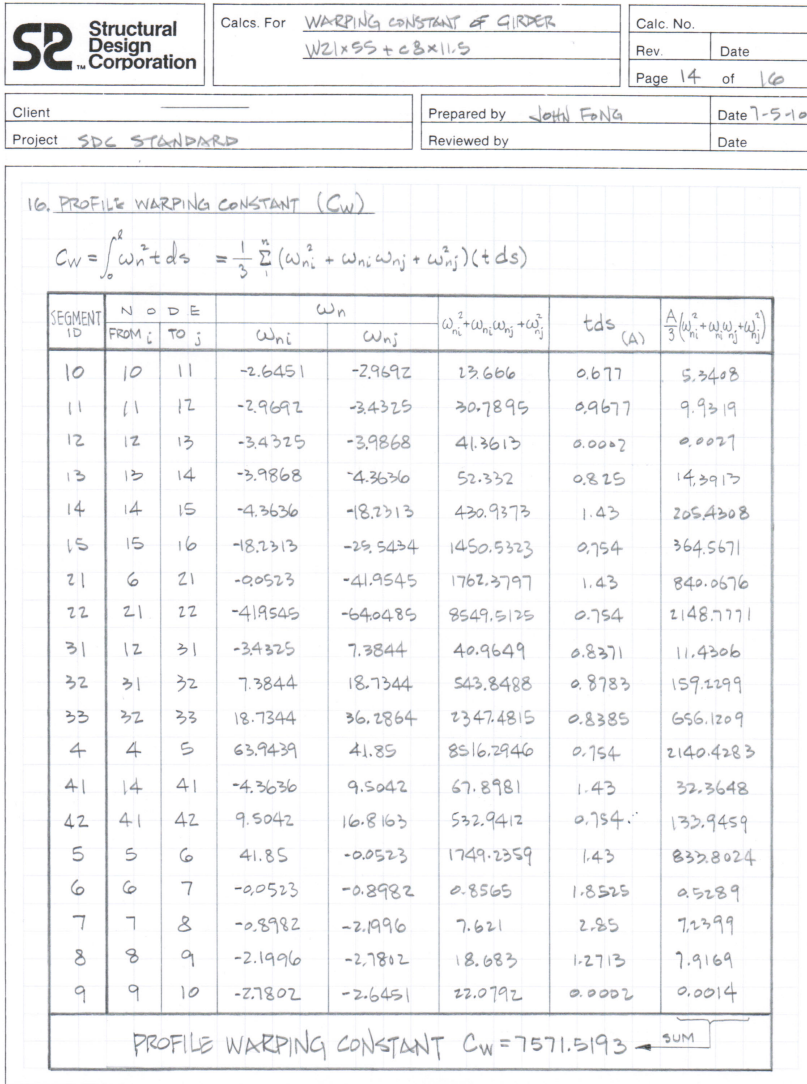 SD Structural Design Corporation TM
Calcs. For WARPING CONSTANT OF GIRDER
W21x55 + C8x11.5
Calc. No.
Rev. Date
Page 14 of 16
Client
Prepared by JOHN FONG Date 7-5-10
Project SDC STANDARD
Reviewed by Date
16. PROFILE WARPING CONSTANT (CW)
CW = ∫₀^ℓ ωn² t ds = 1/3 Σ₁ⁿ (ωni² + ωni ωnj + ωnj²)(t ds)
SEGMENT ID NODE ωn ωni²+ωniωnj+ωnj² tds (A) A/3(ωni²+ωniωnj+ωnj²)
FROM i TO j ωni ωnj
10 10 11 -2.6451 -2.9692 23.666 0.677 5.3408
11 11 12 -2.9692 -3.4325 30.7895 0.9677 9.9319
12 12 13 -3.4325 -3.9868 41.3613 0.0002 0.0027
13 13 14 -3.9868 -4.3636 52.332 0.825 14.3913
14 14 15 -4.3636 -18.2313 430.9373 1.43 205.4308
15 15 16 -18.2313 -25.5434 1450.5323 0.754 364.5671
21 6 21 -0.0523 -41.9545 1762.3797 1.43 840.0676
22 21 22 -41.9545 -64.0485 8549.5125 0.754 2148.7771
31 12 31 -3.4325 7.3844 40.9649 0.8371 11.4306
32 31 32 7.3844 18.7344 543.8488 0.8783 159.2299
33 32 33 18.7344 36.2864 2347.4815 0.8385 656.1209
4 4 5 63.9439 41.85 8516.2946 0.754 2140.4283
41 14 41 -4.3636 9.5042 67.8981 1.43 32.3648
42 41 42 9.5042 16.8163 532.9412 0.754 133.9459
5 5 6 41.85 -0.0523 1749.2359 1.43 833.8024
6 6 7 -0.0523 -0.8982 0.8565 1.8525 0.5289
7 7 8 -0.8982 -2.1996 7.621 2.85 7.2399
8 8 9 -2.1996 -2.7802 18.683 1.2713 7.9169
9 9 10 -2.7802 -2.6451 22.0792 0.0002 0.0014
PROFILE WARPING CONSTANT CW = 7571.5193 SUM